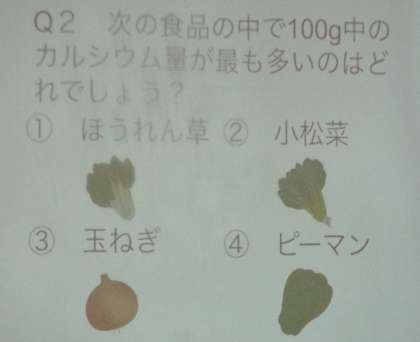 Q2 次の食品の中で100g中の
カルシウム量が最も多いのはど
れでしょう？
① ほうれん草 ② 小松菜
③ 玉ねぎ ④ ピーマン